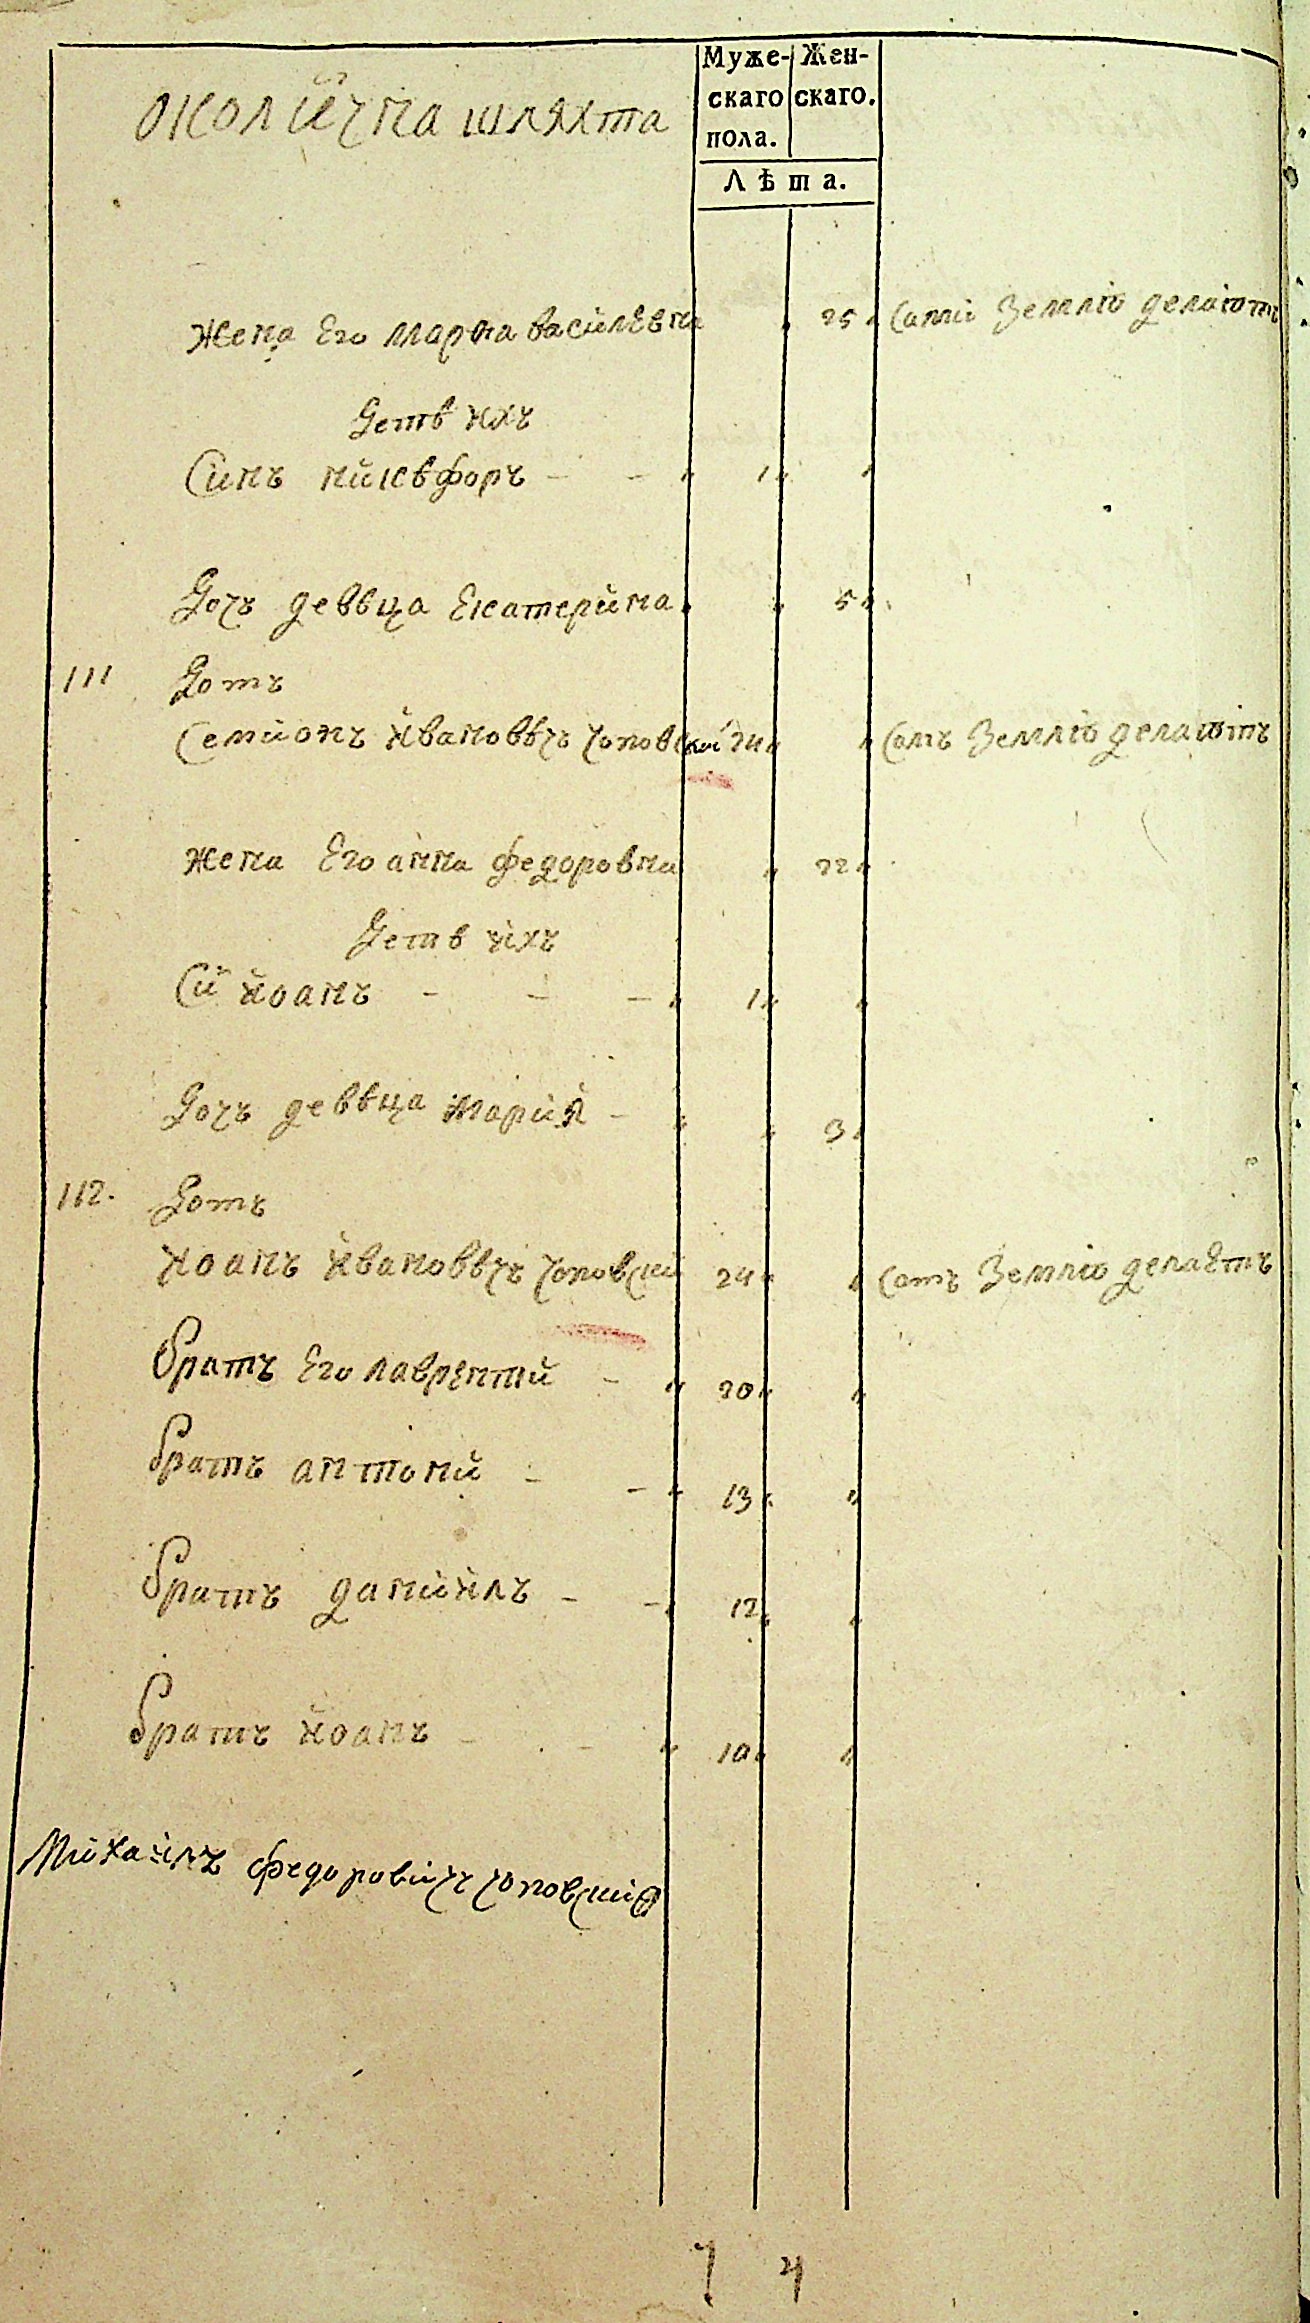 околична шляхта
Муже- Жен-
скаго скаго.
пола.
Лѣта.
Жена Его марѳа василевна 25 Самии Землю делают
Дети ихъ
Синъ никифоръ 1
Дочъ девица Екатерина 5
111 Домъ
Семионъ Ивановичъ Чоповский 24 Самъ Землю делаютъ
жена Его анна федоровна 22
Дети ихъ
Си Иоанъ 1
Дочъ девица мария 3
112. Домъ
Иоанъ Ивановичъ Чоповский 24 Самъ Землю делаетъ
братъ Его лаврентий 20
братъ антоний 13
братъ даниилъ 12
братъ Иоанъ 10
Михаилъ федоровичъ Чоповский
7 4